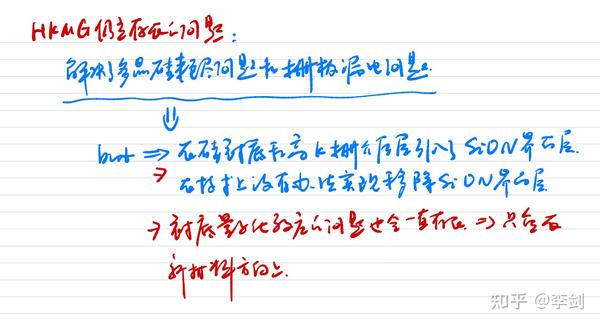 HKMG仍存在的问题：
解决了多晶硅耗尽问题和栅极漏电问题.
but ⇒ 在硅衬底和高k栅介质层引入了SiON界面层.
→ 在技术上没有办法实现移除SiON界面层
→ 衬底量子化效应的问题也会一直存在. ⇒ 只能在
新材料方向上.
知乎 @李剑